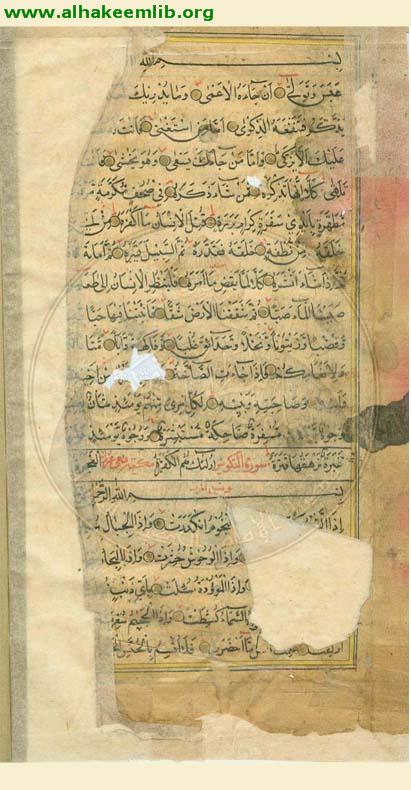 www.alhakeemlib.org
بسم الله
عبس وتولى ان جاءه الاعمى وما يدريك
يذكر فتنفعه الذكرى اما من استغنى فانت
عليك الا يزكى واما من جاءك يسعى وهو يخشى فانت
تلهى كلا انها تذكرة فمن شاء ذكره في صحف مكرمة مرفوعة
مطهرة بايدي سفرة كرام بررة قتل الانسان ما اكفره من اي
خلقه من نطفة خلقه فقدره ثم السبيل يسره ثم اماته
اذا شاء انشره كلا لما يقض ما امره فلينظر الانسان الى طعامه
صببنا الماء صبا ثم شققنا الارض شقا فانبتنا فيها حبا
وقضبا وزيتونا ونخلا وحدائق غلبا وفاكهة وابا متاعا
ولانعامكم فاذا جاءت الصاخة من اخيه
وصاحبته وبنيه لكل امرئ منهم يومئذ شان
وجوه مسفرة ضاحكة مستبشرة ووجوه يومئذ
غبرة ترهقها قترة سورة التكوير اولئك هم الكفرة الفجرة
بسم الله الرحمن
اذا النجوم انكدرت واذا الجبال
واذا الوحوش حشرت واذا البحار
واذا الموءودة سئلت باي ذنب
السماء كشطت واذا الجحيم سعرت
ما احضرت فلا اقسم بالخنس